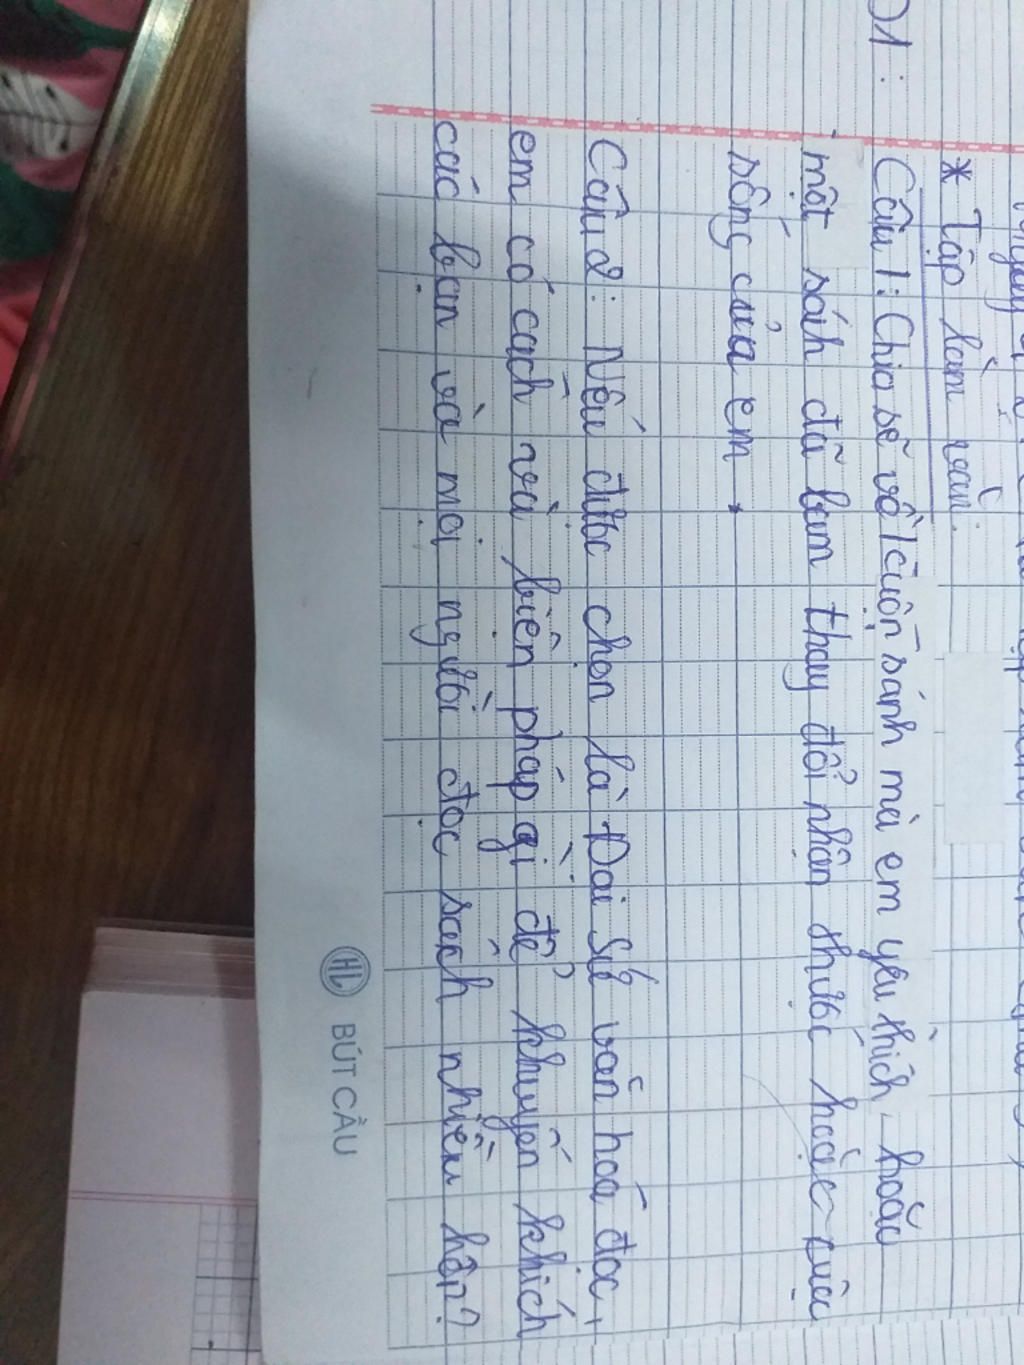 01:
* Tập làm văn:
Câu 1: Chia sẽ về 1 cuộn sánh mà em yêu thích hoặc
một sánh đã làm thay đổi nhận thước hoặc cuộc
sống của em.
Câu 2: Nếu được chọn là Đại Sứ văn hoá đọc,
em có cach và biện pháp gì để khuyến khích
các bạn và mọi người đọc sách nhiều hơn?
HL BÚT CẦU